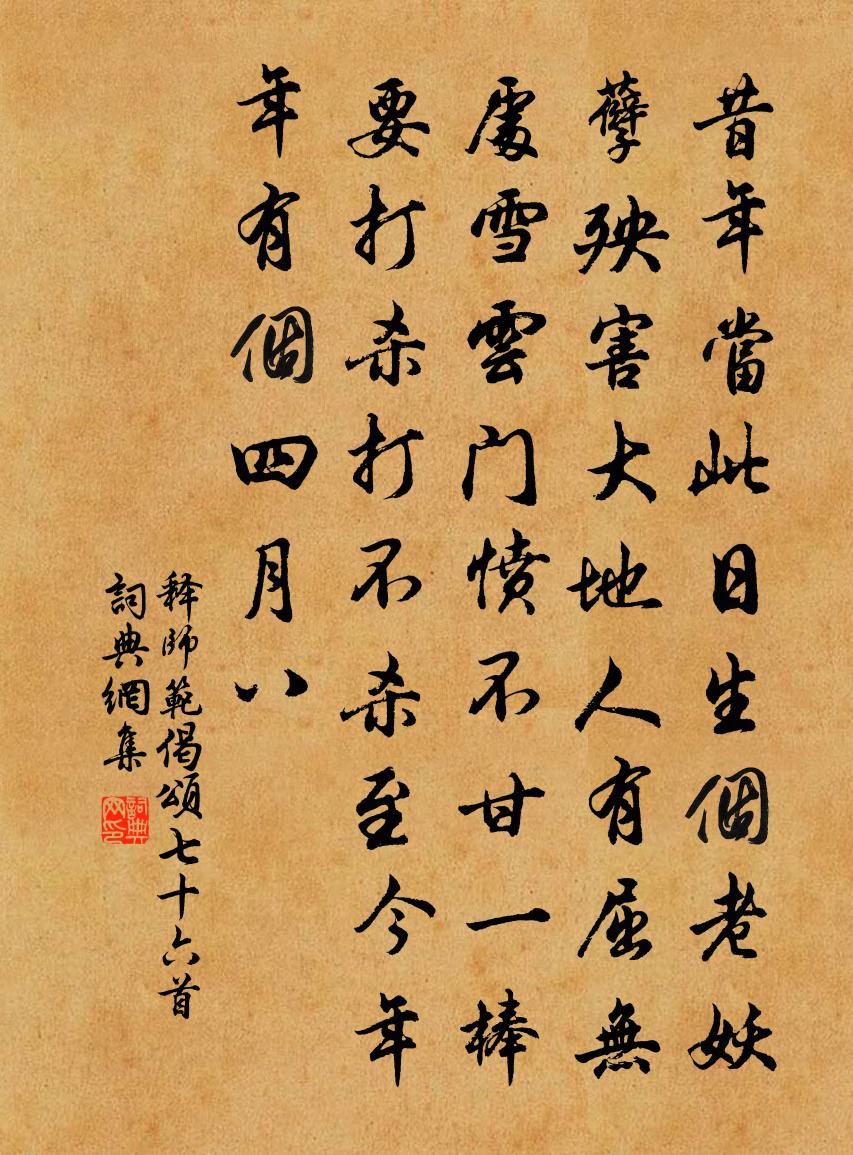 昔年當此日生個老妖
孽殃害大地人有屈無
處雪雲门憤不甘一棒
要打杀打不杀至今年
年有個四月八
释師範偈頌七十六首
詞典網集
詞典网印